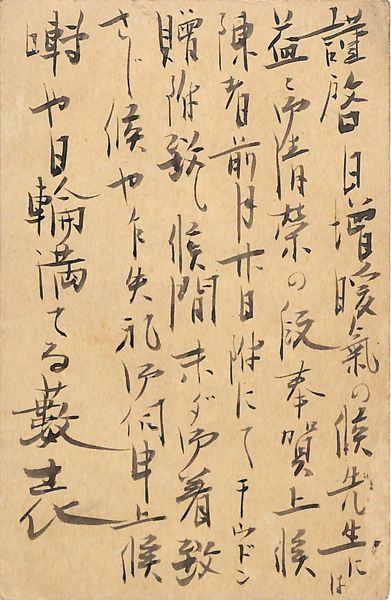 謹啓日増暖氣の候先生には
益々御清榮の段奉賀上候
陳者前月廿日附にて干山ドン
贈附致し候間未ダ御着致
さじ候や乍失礼御伺申上候
囀や日輪満てる藪